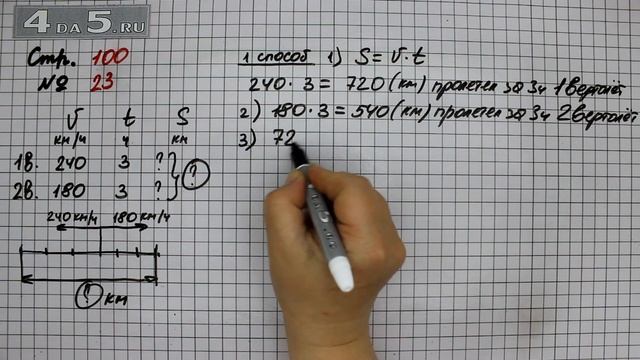 4DA5.RU
Стр. 100
№ 23
V t S
км/ч ч км
1в. 240 3 ?
2в. 180 3 ?
?
240 км/ч 180 км/ч
? км
1 способ 1) S = V · t
240 · 3 = 720 (км) пролетел за 3ч 1 вертолёт
2) 180 · 3 = 540 (км) пролетел за 3ч 2 вертолёт
3) 72